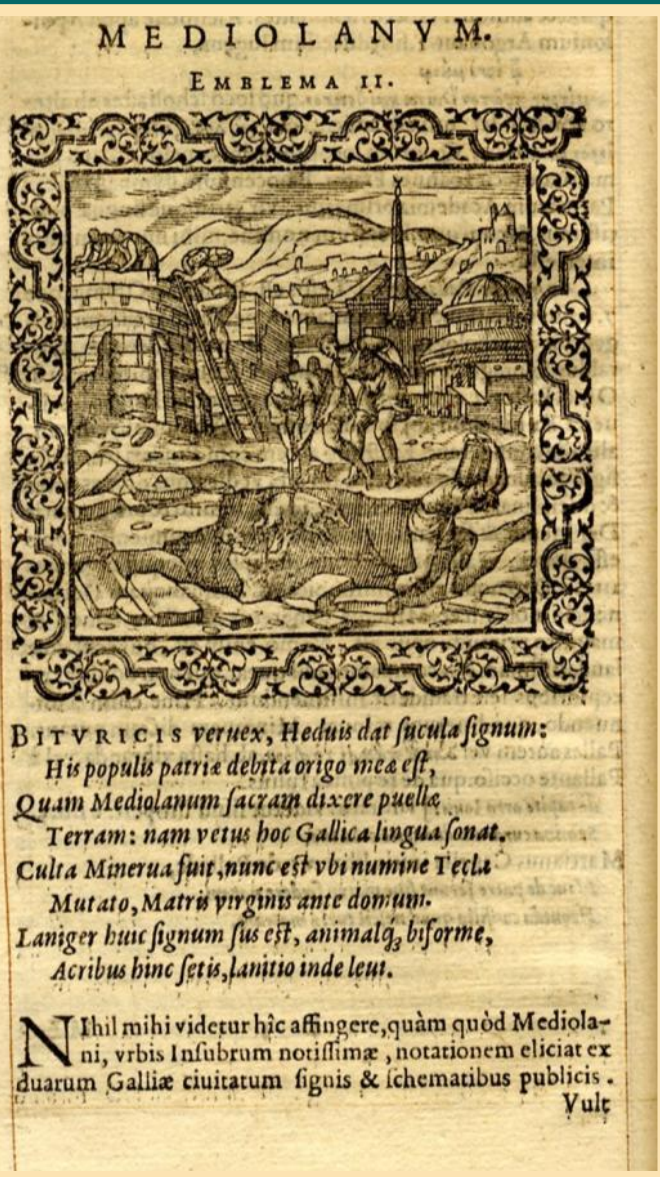 MEDIOLANVM.
EMBLEMA II.
A
BITVRICIS veruex, Heduis dat ſucula ſignum:
His populis patriæ debita origo meæ eſt,
Quam Mediolanum ſacram dixere puellæ
Terram: nam vetus hoc Gallica lingua ſonat.
Culta Minerua fuit, nunc eſt vbi numine Tecla
Mutato, Matris virginis ante domum.
Laniger huic ſignum ſus eſt, animalq́ꝫ biforme,
Acribus hinc ſetis, lanitio inde leui.
NIhil mihi videtur hîc affingere, quàm quòd Mediola-
ni, vrbis Inſubrum notiſſimæ, notationem eliciat ex
duarum Galliæ ciuitatum ſignis & ſchematibus publicis.
Vult